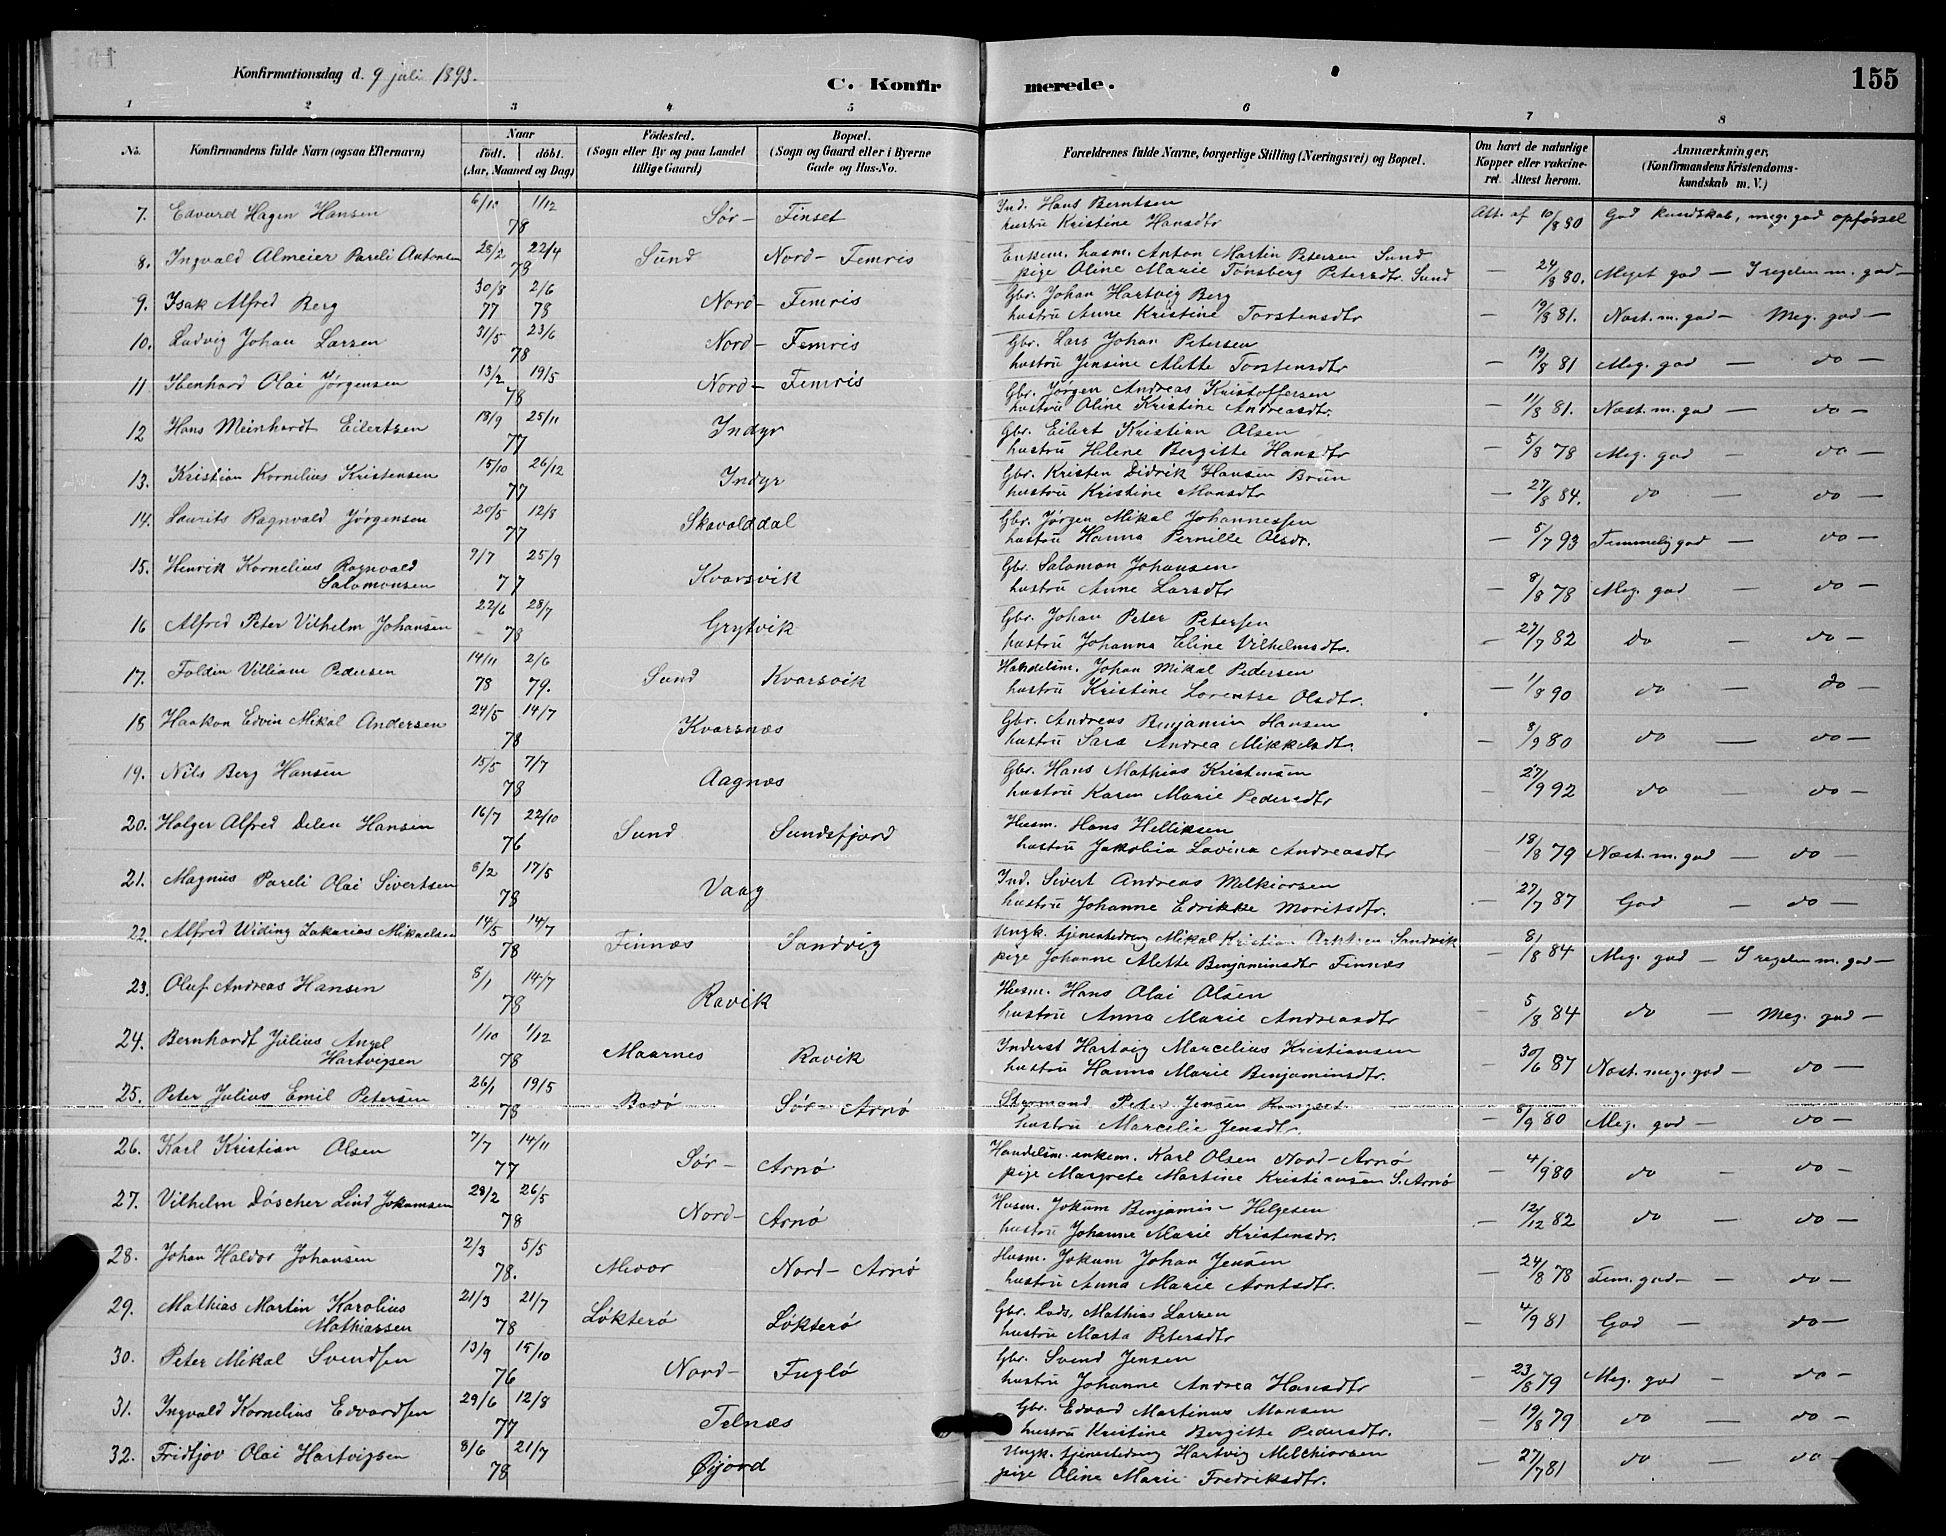 Konfirmationsdag d. 9 juli 1893.
C. Konfirmerede.
155
1 2 3 4 5 6 7 8
No. Konfirmandens fulde Navn (ogsaa Efternavn) Naar födt. döbt. (Aar, Maaned og Dag) Födested. (Sogn eller By og paa Landet tillige Gaard) Bopæl. (Sogn og Gaard eller i Byerne Gade og Hus-No. Forældrenes fulde Navne, borgerlige Stilling (Næringsvei) og Bopæl. Om havt de naturlige Kopper eller vakcineret. Attest herom. Anmærkninger, (Konfirmandens Kristendomskundskab m. V.)
7. Edvard Hagen Hansen 6/10 1/12 78 Sør-Finset Ind. Hans Berntsen
hustru Kristine Hansdtr Att. af 10/8 80 God kundskab, meg. god opførsel
8. Ingvald Almeier Pareli Antonsen 28/2 22/4 78 Sund Nord-Femris Enkem. husm. Anton Martin Petersen Sund
pige Oline Marie Tønsberg Petersdtr. Sund — 24/8 80. Meget god — I regelen m. god —
9. Isak Alfred Berg 30/8 77 2/6 78 Nord-Femris Gbr. Johan Hartvig Berg
hustru Anne Kristine Torstensdtr — 19/8 81. Næst. m. god — Meg. god —
10. Ludvig Johan Larsen 31/5 23/6 78 Nord-Femris Gbr. Lars Johan Petersen
hustru Jensine Alette Torstensdtr — 19/8 81 Meg. god — do —
11 Ibenhard Olai Jørgensen 13/2 19/5 78 Nord-Femris Gbr. Jørgen Andreas Kristoffersen
hustru Oline Kristine Andreasdtr. — 11/8 81. Næst. m. god — do —
12 Hans Meinhardt Eilertsen 13/9 25/11 77 Indyr Gbr. Eilert Kristian Olsen
hustru Helene Bergitte Hansdtr — 5/8 78 Meg. god — do —
13. Kristian Kornelius Kristensen 15/10 26/12 77 Indyr Gbr. Kristen Didrik Hansen Brun
hustru Kristine Monsdtr — 27/8 84. do — do —
14. Laurits Ragnvald Jørgensen 20/5 12/8 77 Skavolddal Gbr. Jørgen Mikal Johannessen
hustru Hanna Pernille Olsdr. — 5/7 93 Temmelig god — do —
15. Henrik Kornelius Ragnvald
Salomonsen 7/7 25/9 77 Kvarsvik Gbr. Salomon Johansen
hustru Anne Larsdtr — 8/8 78 Meg. god — do —
16 Alfred Peter Vilhelm Johansen 22/6 28/7 78 Grytvik Gbr. Johan Peter Petersen
hustru Johanna Eline Vilhelmsdtr. — 27/7 82 do — do —
17. Foldin Villiam Pedersen 14/11 78 2/6 79. Sund Kvarsvik Handelsm. Johan Mikal Pedersen
hustru Kristine Lorentse Olsdtr. — 1/8 90 do — do —
18 Haakon Edvin Mikal Andersen 24/5 14/7 78 Kvarsnæs Gbr. Andreas Benjamin Hansen
hustru Sara Andrea Mikkelsdtr. — 8/9 80 do — do —
19. Nils Berg Hansen 15/5 7/7 78 Aagnæs Gbr. Hans Mathias Kristensen
hustru Karen Marie Pedersdtr — 27/9 92 do — do —
20. Holger Alfred Delen Hansen 16/7 22/10 76 Sund Sundsfjord Husm. Hans Helliksen
hustru Jakobia Lovina Andreasdtr — 18/8 79 Næst. m. god — do —
21. Magnus Pareli Olai Sivertsen 8/2 17/5 78 Vaag Ind. Sivert Andreas Melkiorsen
hustru Johanne Edrikke Moritsdtr. — 27/7 87 God — do —
22. Alfred Widing Zakarias Mikaelsen 14/5 14/7 78 Finnæs Sandvig Ungk. tjenestedreng Mikal Kristian Sandvik
pige Johanne Alette Benjaminsdtr Finnæs — 8/8 84 Meg. god — I regelen m. god —
23. Oluf Andreas Hansen 8/1 14/7 78 Ravik Husm. Hans Olai Olsen
hustru Anna Marie Andreasdtr — 5/8 84 do — Meg. god —
24. Bernhardt Julius Angel
Hartvigsen 1/10 1/12 78 Maarnes Ravik Inderst Hartvig Marcelius Kristiansen
hustru Hanna Marie Benjaminsdtr. — 30/6 87 Næst. meg. god — do —
25. Peter Julius Emil Petersen 26/1 19/5 78 Bodø Sør-Arnø Styrmand Peter Jensen
hustru Marcelie Jensdtr. — 8/9 80 Meg. god — do —
26. Karl Kristian Olsen 7/7 14/11 77 Sør-Arnø Handelsm. enkem. Karl Olsen Nord-Arnø
pige Margrete Martine Kristiansen S. Arnø — 4/9 80 do — do —
27. Vilhelm Döscher Lind Jokumsen 28/2 26/5 78 Nord-Arnø Husm. Jokum Benjamin Helgesen
hustru Johanne Marie Kristensdr. — 12/12 82 do — do —
28. Johan Haldor Johansen 2/3 5/5 78. Alvor Nord-Arnø Husm. Jokum Johan Jensen
hustru Anna Marie Arntsdtr. — 24/8 78 Tem. god — do —
29. Mathias Martin Karolius
Mathiassen 21/3 21/7 78 Løkterø Løkterø Gbr. Lods. Mathias Larsen
hustru Marta Petersdtr — 4/9 81 God — do —
30. Peter Mikal Svendsen 13/9 15/10 76 Nord-Fuglø Gbr. Svend Jensen
hustru Johanne Andrea Hansdtr — 23/8 79 Meg. god — do —
31. Ingvald Kornelius Edvardsen 29/6 12/8 77 Telnæs Gbr. Edvard Martinus Monsen
hustru Kristine Bergitte Pedersdtr. — 19/8 79 do — do —
32. Fridtjov Olai Hartvigsen 8/6 21/7 78 Øijord Ungk. tjenestedreng Hartvig Melchiorsen
pige Oline Marie Fredriksdtr. — 27/7 81 do — do —